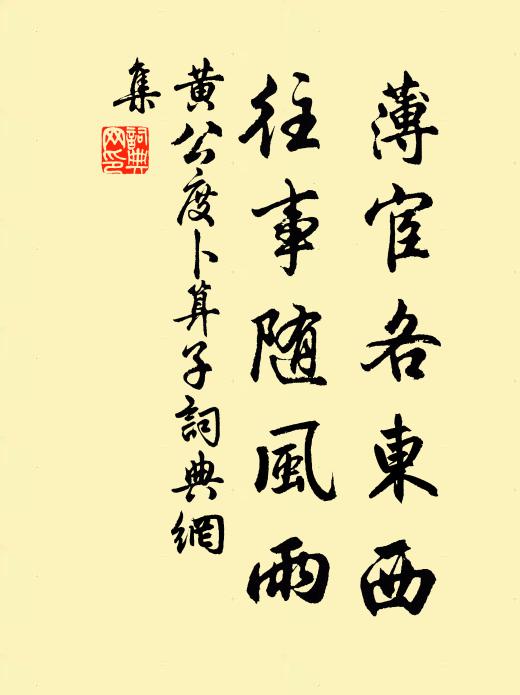 薄宦各東西
往事隨風雨
黃公度卜算子詞典網
集
詞典
网印